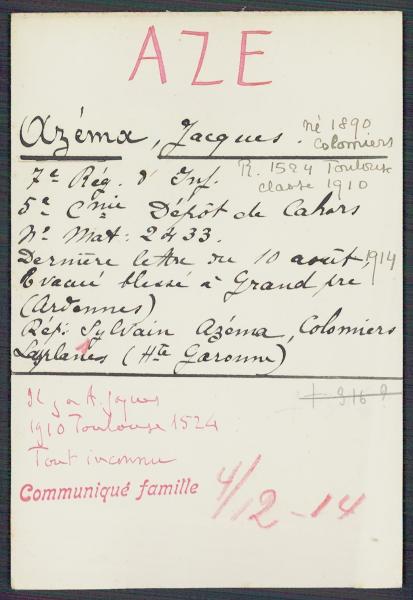 AZE
Azéma, Jacques.
né 1890
Colomiers
R. 1524 Toulouse
classe 1910
7e Rég. d' Inf.
5e Cnie Dépôt de Cahors
No Mat: 2433.
Dernière lettre du 10 août, 1914
Evacué blessé à Grand pré
(Ardennes)
Rép: Sylvain Azéma, Colomiers
Laplanes (Hte Garonne)
+ 916 ?
Il y a A. Jaques
1910 Toulouse 1524
Tout inconnu
Communiqué famille
4/12-14